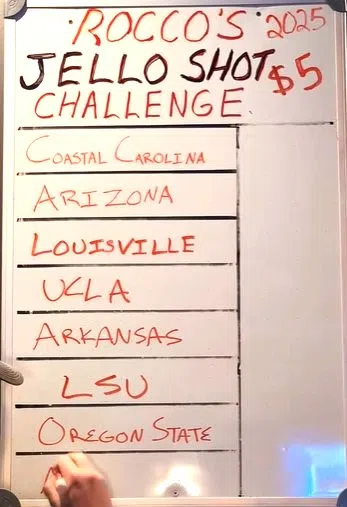 ROCCO'S 2025
JELLO SHOT $5
CHALLENGE
COASTAL CAROLINA
ARIZONA
LOUISVILLE
UCLA
ARKANSAS
LSU
OREGON STATE